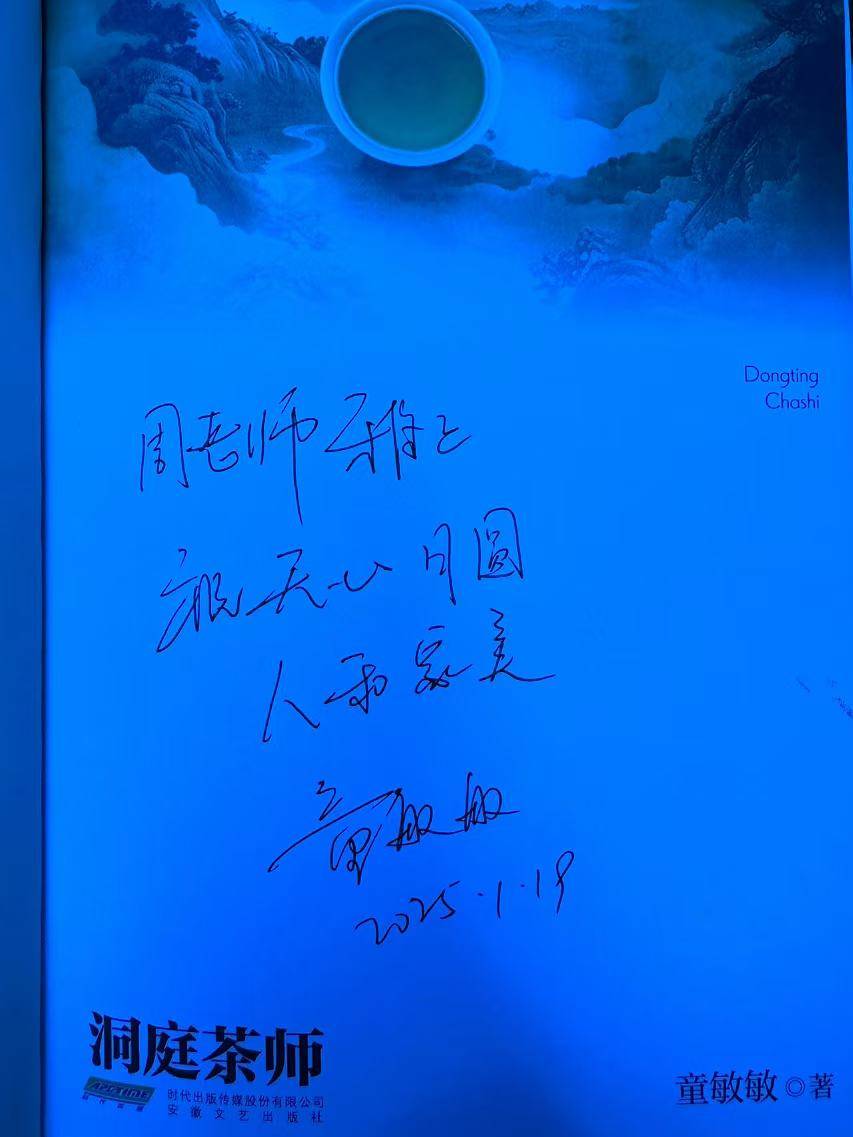 Dongting
Chashi
周老师雅正
祝天心月圆
人和家美
童敏敏
2025.1.19
洞庭茶师
APGTIME
时代出版
时代出版传媒股份有限公司
安徽文艺出版社
童敏敏◎著